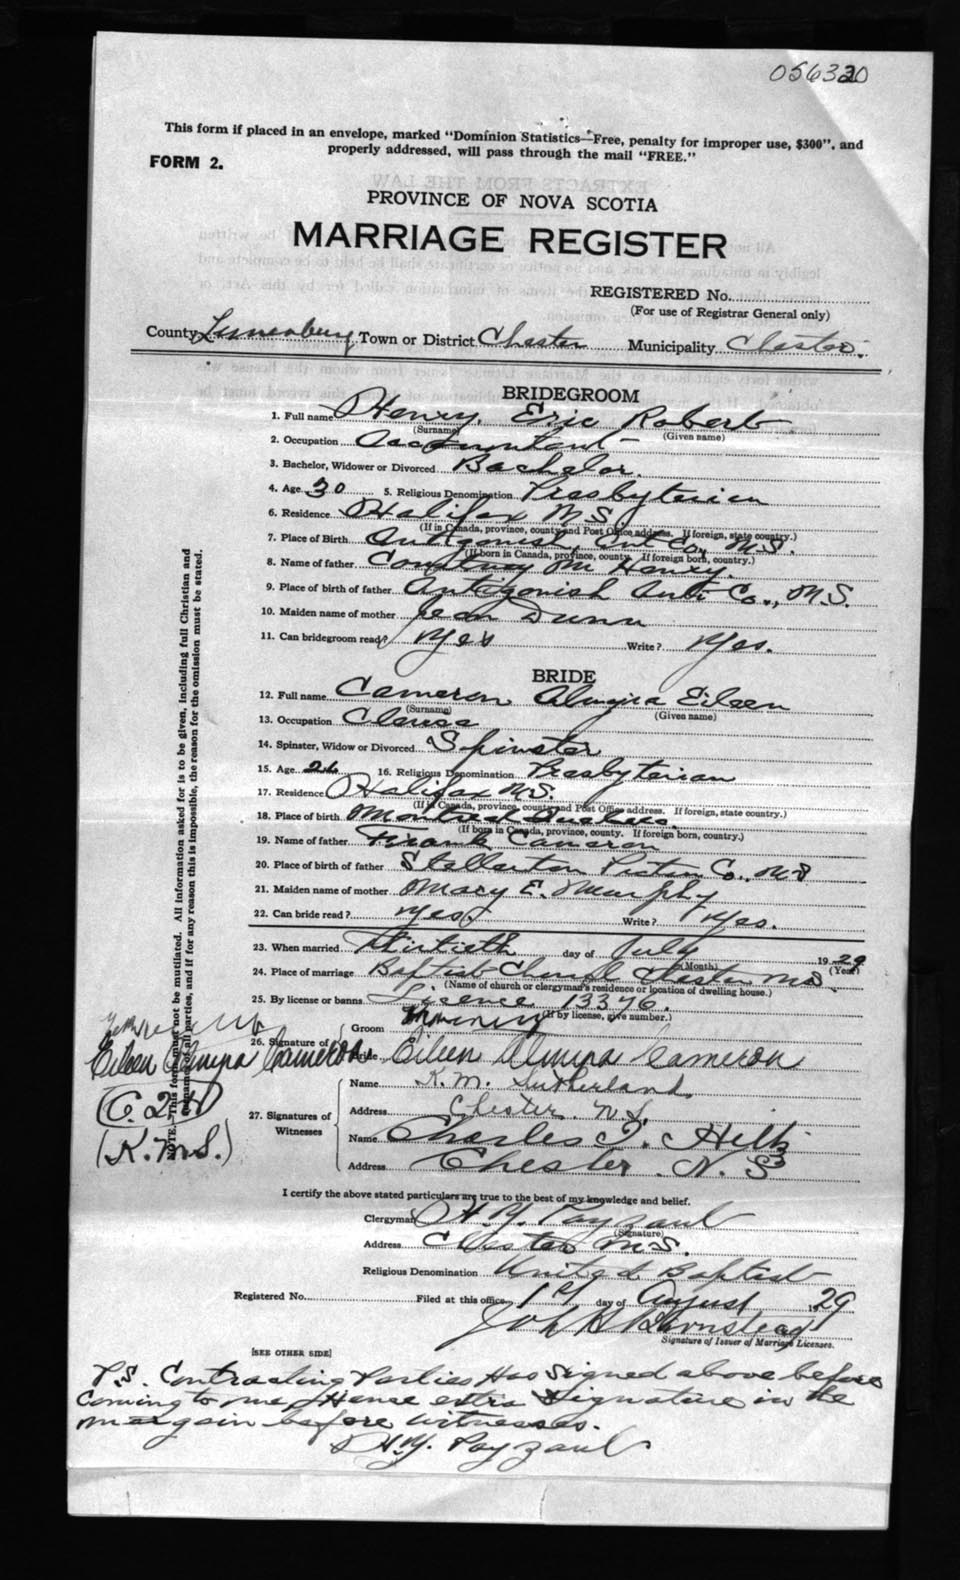 056320
This form if placed in an envelope, marked "Dominion Statistics—Free, penalty for improper use, $300", and
properly addressed, will pass through the mail "FREE."
FORM 2.
PROVINCE OF NOVA SCOTIA
MARRIAGE REGISTER
REGISTERED No.
(For use of Registrar General only)
County Lunenburg Town or District Chester Municipality Chester.
BRIDEGROOM
1. Full name Henry, Eric Robert
(Surname) (Given name)
2. Occupation Accountant
3. Bachelor, Widower or Divorced Bachelor.
4. Age 30 5. Religious Denomination Presbyterian
6. Residence Halifax N.S.
(If in Canada, province, county and Post Office address. If foreign, state country.)
7. Place of Birth Antigonish Ant. Co., N.S.
(If born in Canada, province, county. If foreign born, country.)
8. Name of father M. Henry.
9. Place of birth of father Antigonish Anti Co., N.S.
10. Maiden name of mother Jean Dunn
11. Can bridegroom read? Yes Write? Yes.
BRIDE
12. Full name Cameron Almyra Eileen
(Surname) (Given name)
13. Occupation
14. Spinster, Widow or Divorced Spinster
15. Age 26 16. Religious Denomination Presbyterian
17. Residence Halifax N.S.
(If in Canada, province, county and Post Office address. If foreign, state country.)
18. Place of birth Montreal Quebec.
(If born in Canada, province, county. If foreign born, country.)
19. Name of father Frank Cameron
20. Place of birth of father Stellarton Pictou Co., N.S
21. Maiden name of mother Mary E. Murphy
22. Can bride read? Yes. Write? Yes.
23. When married Thirtieth day of July 1929
(Month) (Year)
24. Place of marriage Baptist Church Chester N.S.
(Name of church or clergyman's residence or location of dwelling house.)
25. By license or banns License 13376.
(If by license, give number.)
26. Signature of Groom
Bride Eileen Almyra Cameron
Eileen Almyra Cameron
27. Signatures of Witnesses
Name K. M. Sutherland
Address Chester. N.S.
Name Charles T. Hiltz
Address Chester. N.S
(K.M.S.)
NOTE.—This form must not be mutilated. All information asked for is to be given, including full Christian and
surname of all parties, and if for any reason this is impossible, the reason for the omission must be stated.
I certify the above stated particulars are true to the best of my knowledge and belief.
Clergyman H. Y. Payzant
(Signature)
Address Chester N.S.
Religious Denomination United Baptist
Registered No. Filed at this office 1st day of August 1929
John H Barnstead
Signature of Issuer of Marriage Licenses.
[SEE OTHER SIDE]
P.S. Contracting Parties Has Signed above before
coming to me, Hence extra Signature in the
margain before witnesses.
H.Y. Payzant